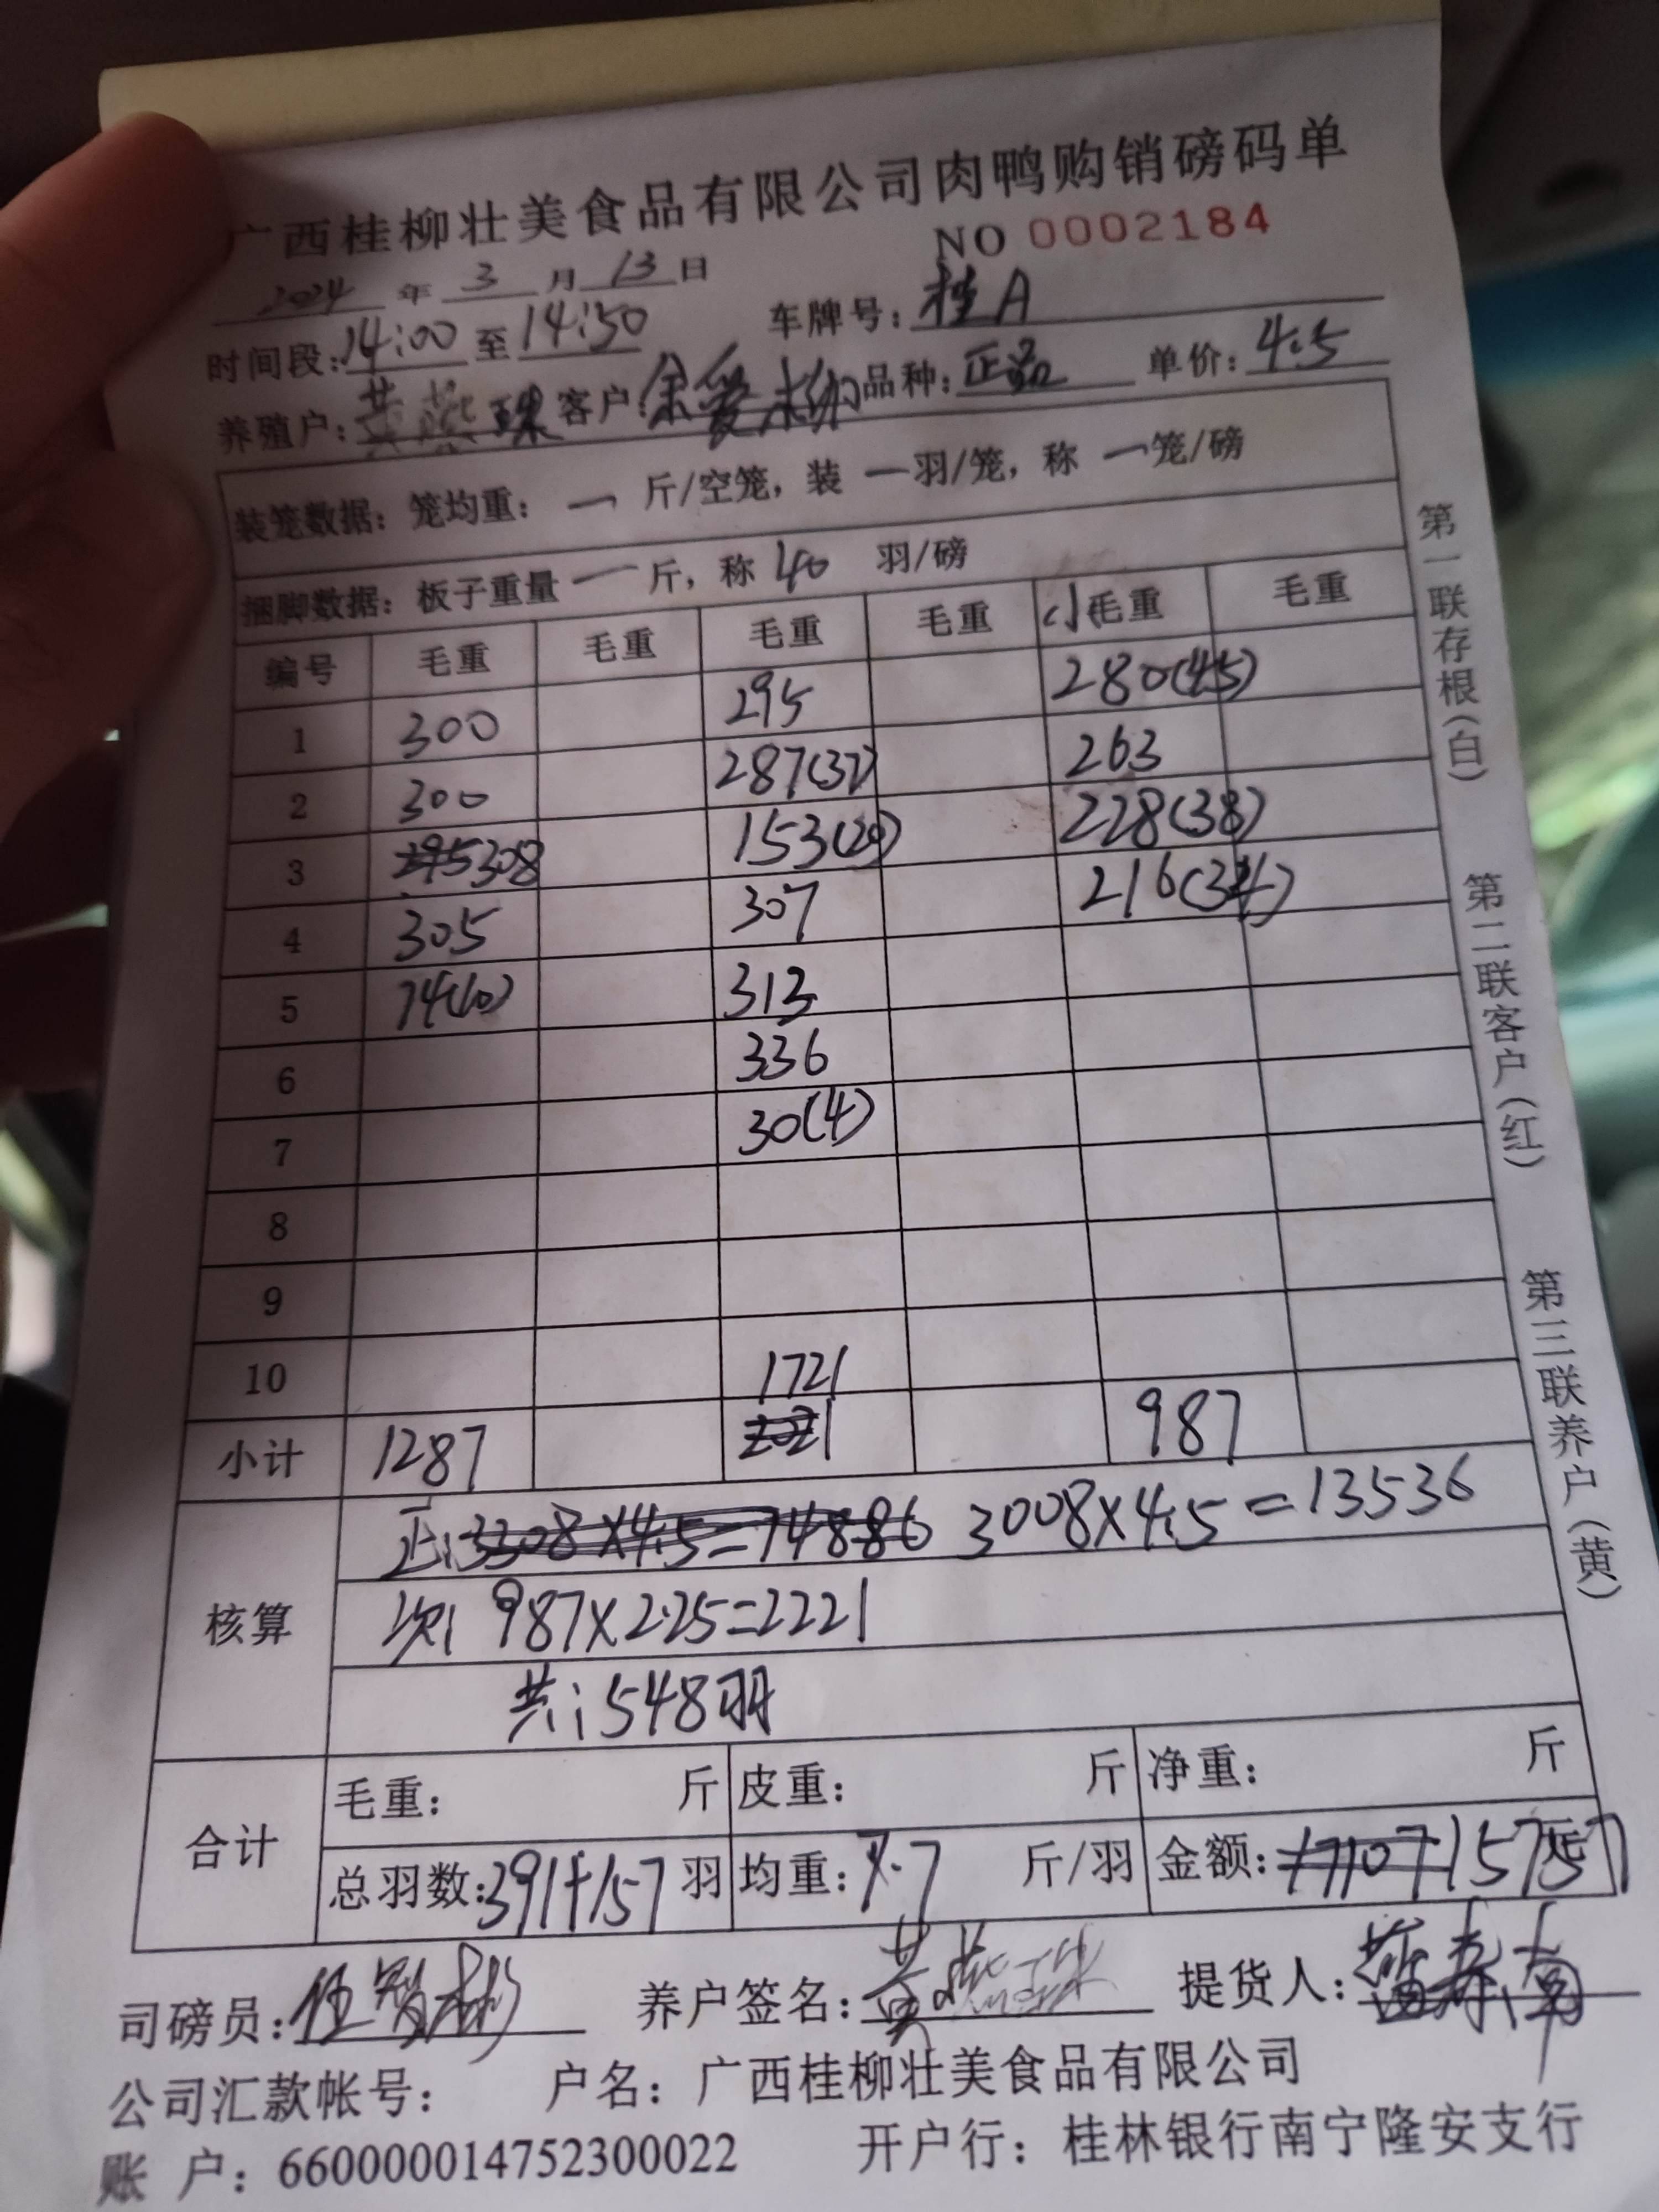 广西桂柳壮美食品有限公司肉鸭购销磅码单
NO 0002184
2024 年 3 月 13 日
时间段: 14:00 至 14:50 车牌号: 桂A
养殖户: 黄燕珠 客户: 余爱 品种: 正品 单价: 4.5
装笼数据: 笼均重: 一 斤/空笼, 装 一 羽/笼, 称 一 笼/磅
捆脚数据: 板子重量 一 斤, 称 40 羽/磅
编号 毛重 毛重 毛重 毛重 小 毛重 毛重
1 300 295 280(45)
2 300 287(37) 263
3 295 308 153(20) 228(38)
4 305 307 216(34)
5 74(10) 313
6 336
7 30(4)
8
9
10 1721
小计 1287 2021 987
核算 正: 3308×4.5=14886 3008×4.5=13536
次: 987×2.25=2221
共: 548羽
合计 毛重: 斤 皮重: 斤 净重: 斤
总羽数: 391+157 羽 均重: 7.7 斤/羽 金额: 17107 15757 元
司磅员: 养户签名: 黄燕珠 提货人:
公司汇款帐号: 户名: 广西桂柳壮美食品有限公司
账 户: 660000014752300022 开户行: 桂林银行南宁隆安支行
第一联存根(白)
第二联客户(红)
第三联养户(黄)